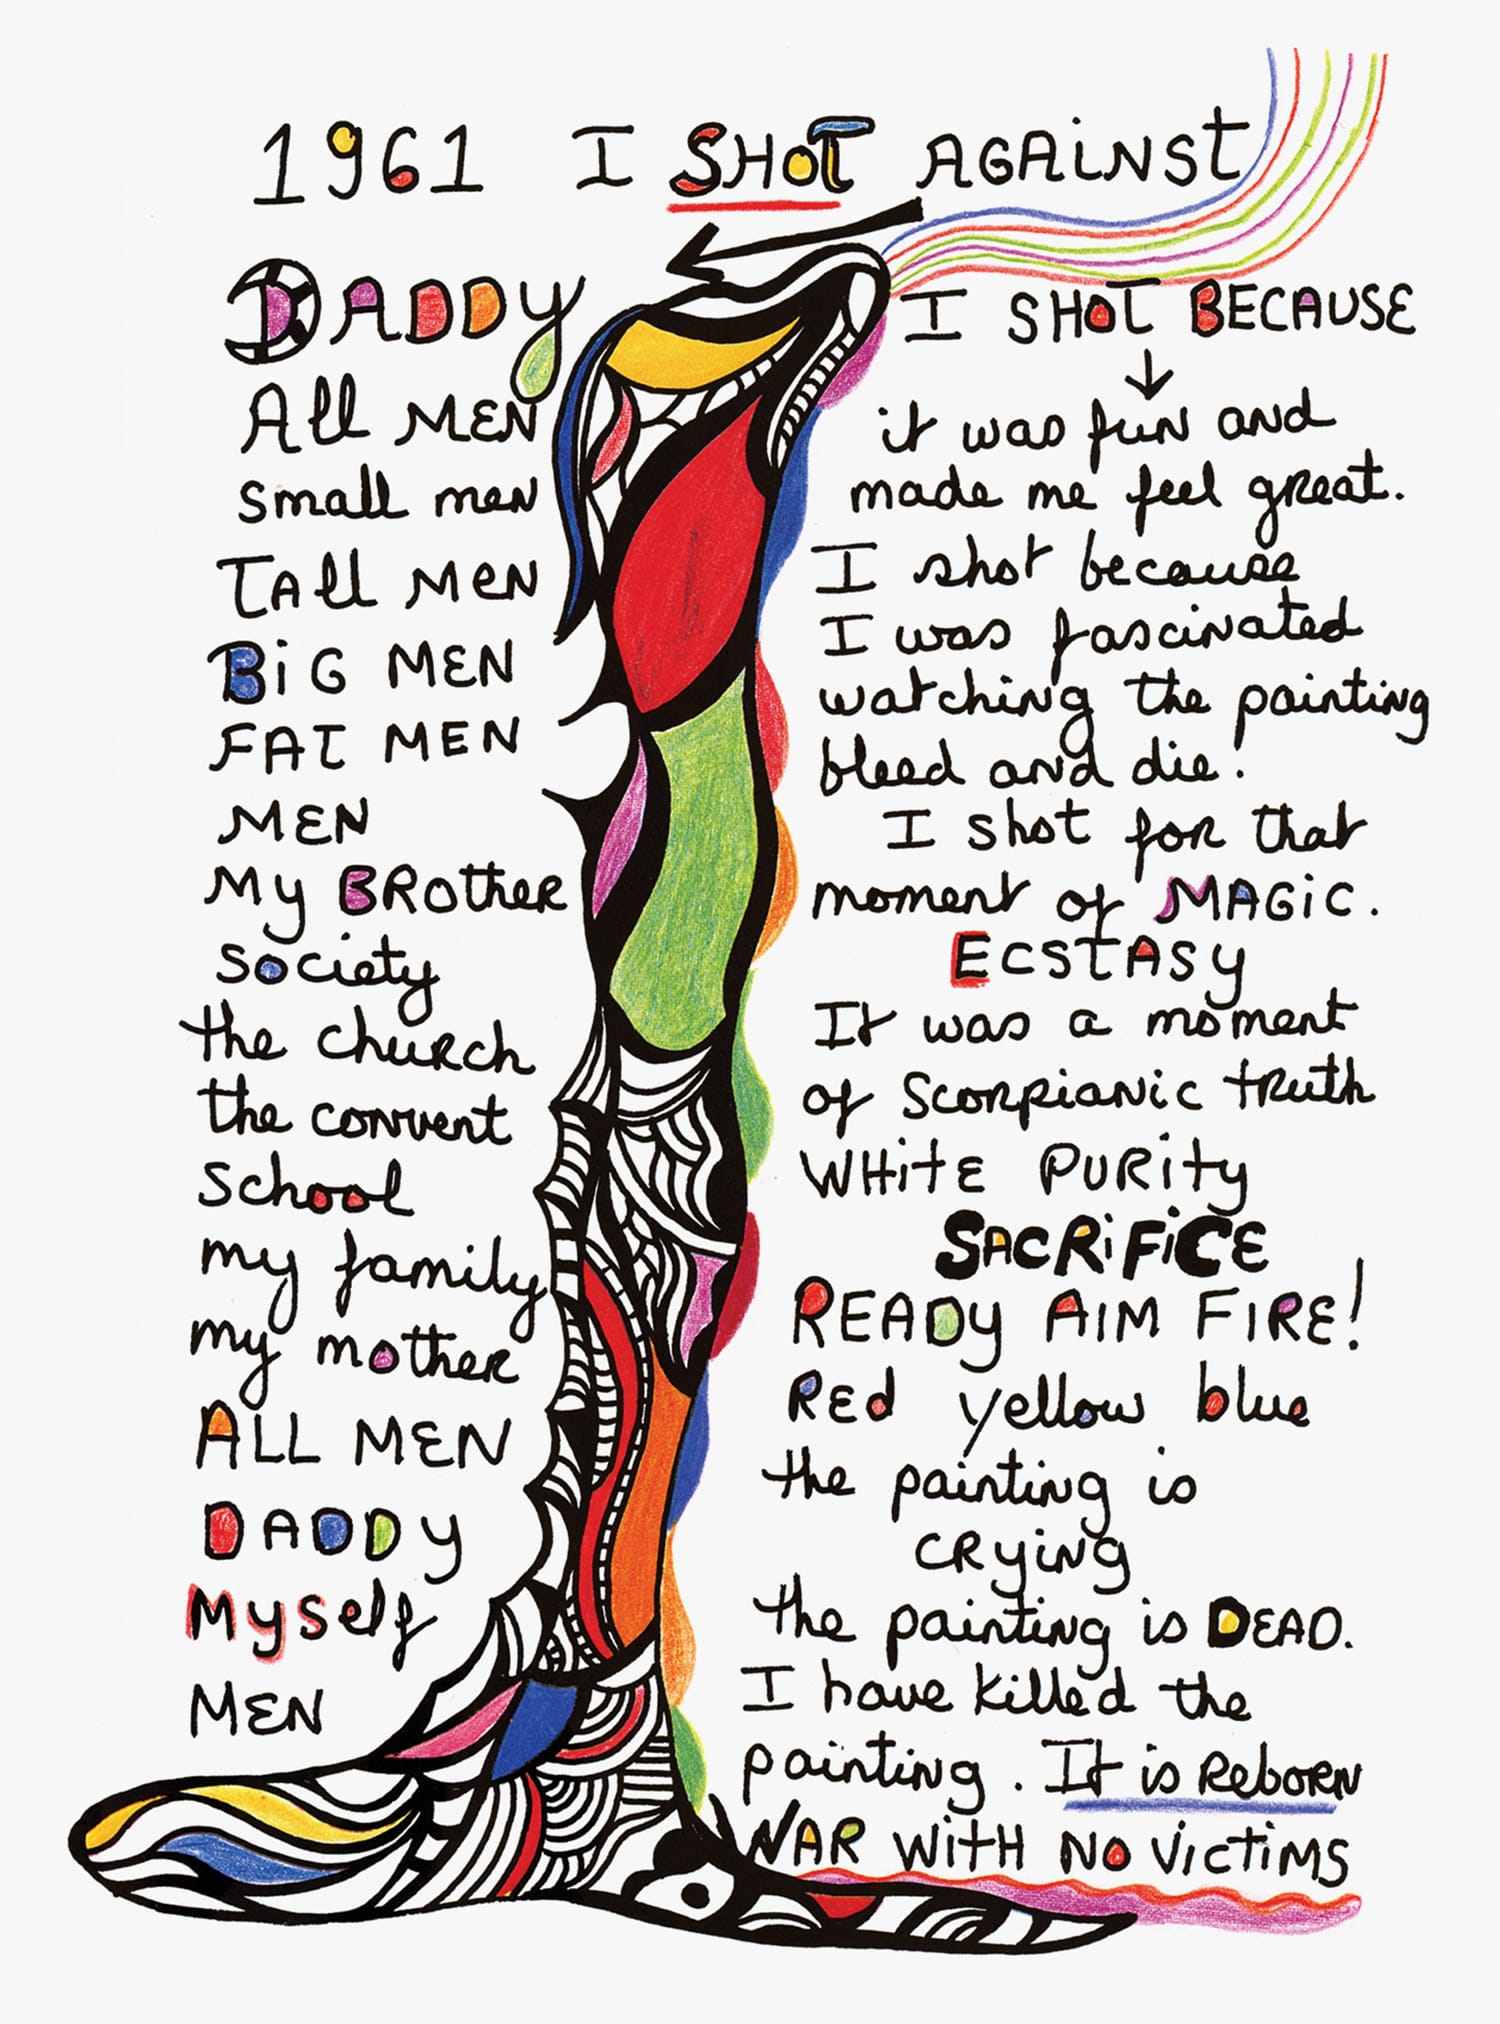 1961 I SHOT AGAINST
DADDY
All MEN
small men
TAll MEN
BiG MEN
FAT MEN
MEN
My BROther
society
the church
the convent
school
my family
my mother
ALL MEN
DADDY
Myself
MEN
I SHOT BECAUSE
it was fun and
made me feel great.
I shot because
I was fascinated
watching the painting
bleed and die.
I shot for that
moment of MAGiC.
ECSTASY
It was a moment
of scorpianic truth
WHitE PURity
SACRiFiCE
READy AIM FIRE!
REd yellow blue
the painting is
CRying
the painting is DEAD.
I have killed the
painting. It is Reborn
WAR WitH NO VictiMS